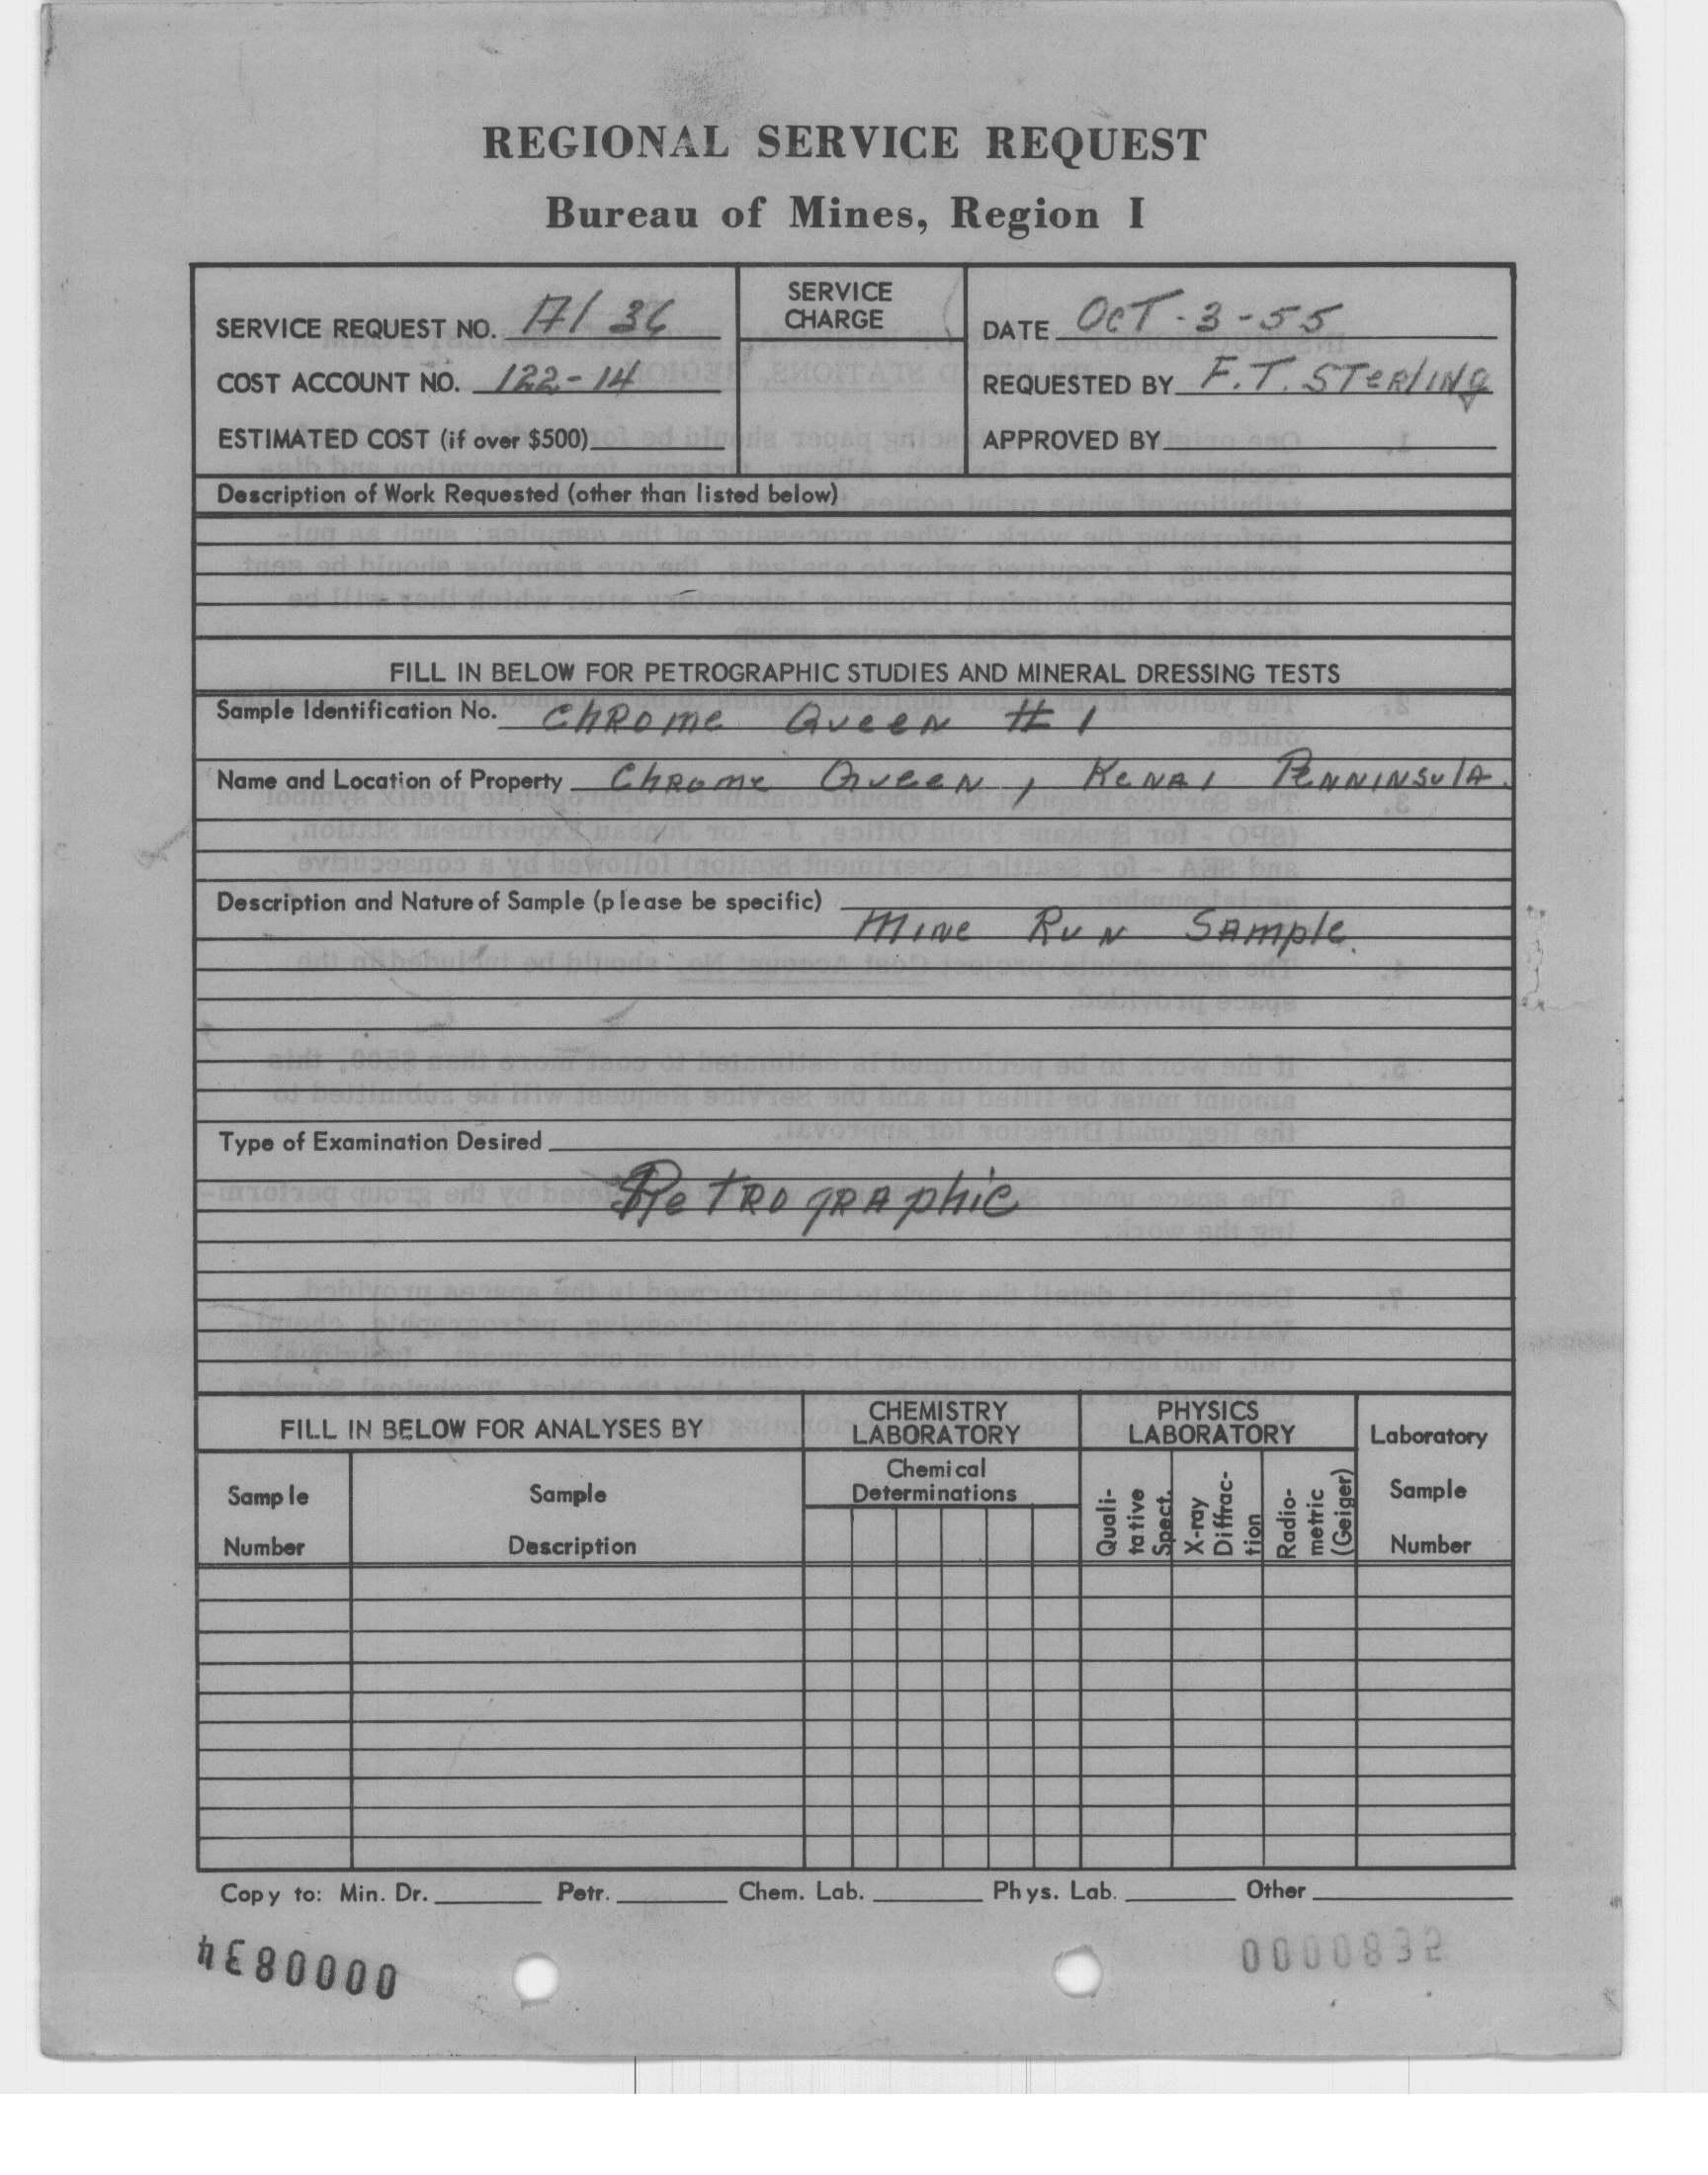 REGIONAL SERVICE REQUEST
Bureau of Mines, Region I
SERVICE REQUEST NO. A/ 36
COST ACCOUNT NO. 122-14
ESTIMATED COST (if over $500)
SERVICE
CHARGE
DATE OcT-3-55
REQUESTED BY F.T. STeRlING
APPROVED BY
Description of Work Requested (other than listed below)
FILL IN BELOW FOR PETROGRAPHIC STUDIES AND MINERAL DRESSING TESTS
Sample Identification No. ChRome QueeN # 1
Name and Location of Property ChRome QueeN, KeNAI PeNNINSulA.
Description and Nature of Sample (please be specific)
MINe RuN SAmple.
Type of Examination Desired
PeTROgRAphic
FILL IN BELOW FOR ANALYSES BY
CHEMISTRY
LABORATORY
PHYSICS
LABORATORY
Laboratory
Sample
Number
Sample
Number
Sample
Description
Chemical
Determinations
Quali-
tative
Spect.
X-ray
Diffrac-
tion
Radio-
metric
(Geiger)
Copy to: Min. Dr. Petr. Chem. Lab. Phys. Lab. Other
0000834
0000832